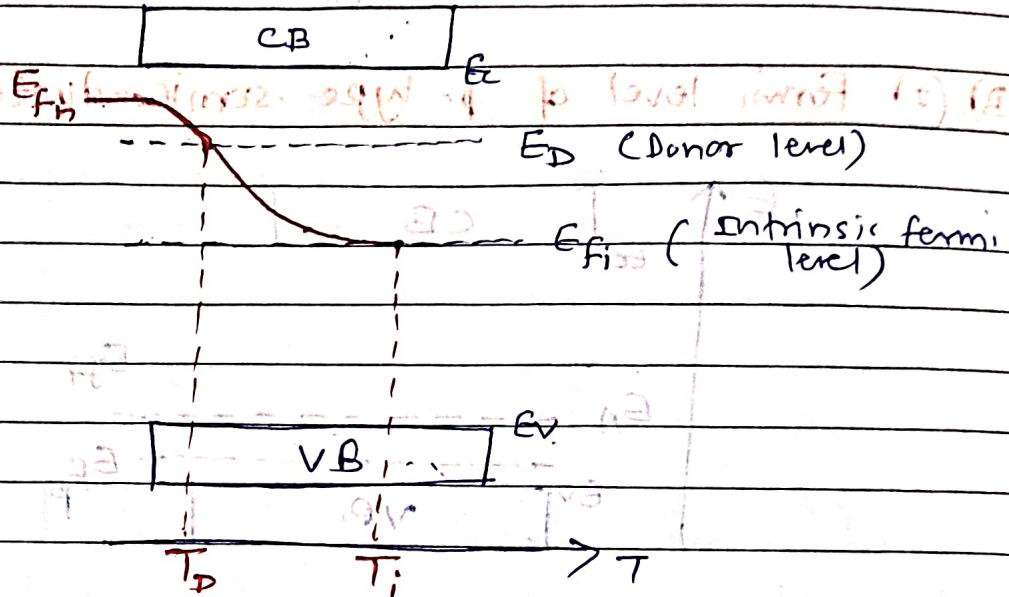 CB
Ec
Efn
ED (Donor level)
Efi (Intrinsic fermi
level)
Ev
VB
TD
Ti
T